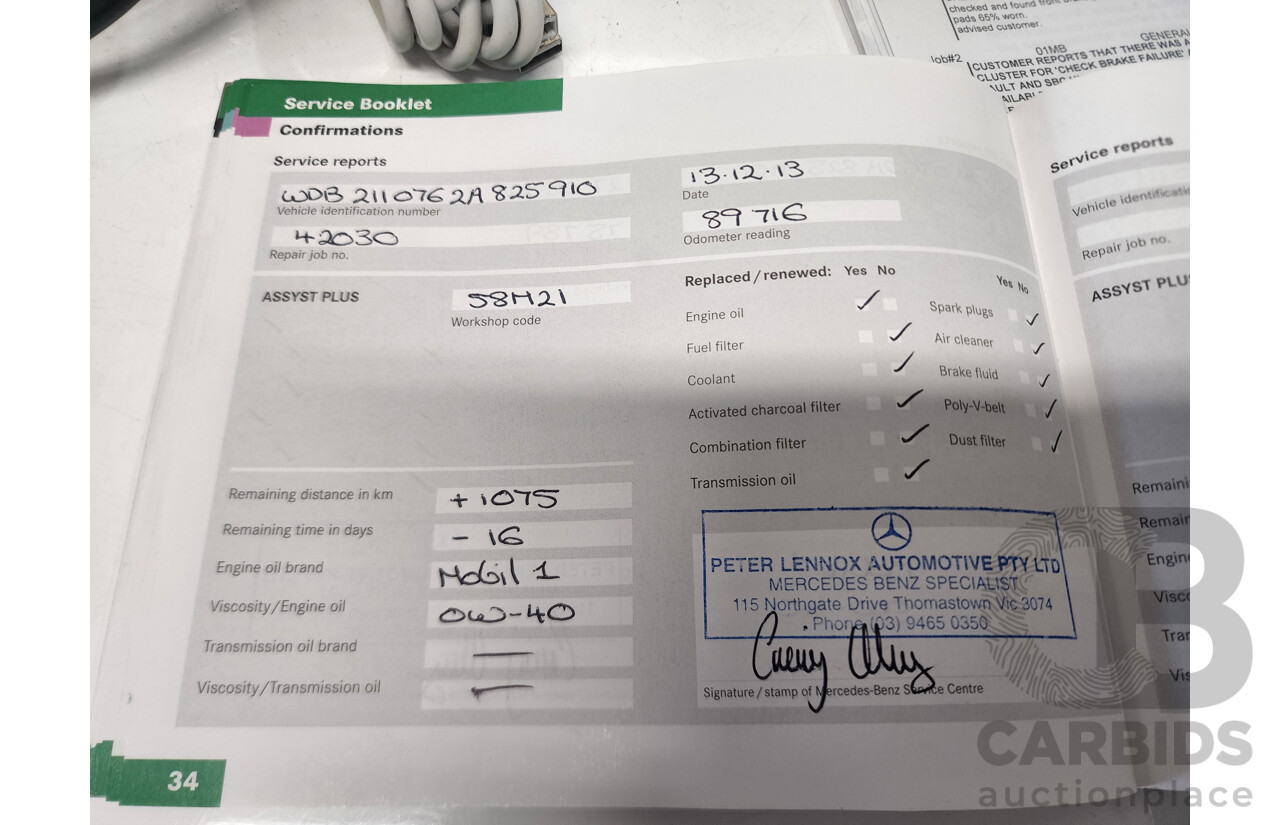 checked and found
pads 65% worn.
advised customer.
Job#2 01MB GENERAL
CUSTOMER REPORTS THAT THERE WAS A
CLUSTER FOR 'CHECK BRAKE FAILURE'
AULT AND SBC
Service Booklet
Confirmations
Service reports
WDB 2110762A825910
Vehicle identification number
13.12.13
Date
42030
Repair job no.
89716
Odometer reading
ASSYST PLUS
58H21
Workshop code
Replaced/renewed: Yes No Yes No
Engine oil ✓ Spark plugs ✓
Fuel filter ✓ Air cleaner ✓
Coolant ✓ Brake fluid ✓
Activated charcoal filter ✓ Poly-V-belt ✓
Combination filter ✓ Dust filter ✓
Transmission oil ✓
Remaining distance in km +1075
Remaining time in days - 16
Engine oil brand Mobil 1
Viscosity/Engine oil 0W-40
Transmission oil brand —
Viscosity/Transmission oil —
PETER LENNOX AUTOMOTIVE PTY LTD
MERCEDES BENZ SPECIALIST
115 Northgate Drive Thomastown Vic 3074
Phone (03) 9465 0350
Signature/stamp of Mercedes-Benz Service Centre
34
Service reports
Vehicle identificatio
Repair job no.
ASSYST PLU
Remaini
Remair
Engine
Visco
Tra
Vis
CB
CARBIDS
auctionplace